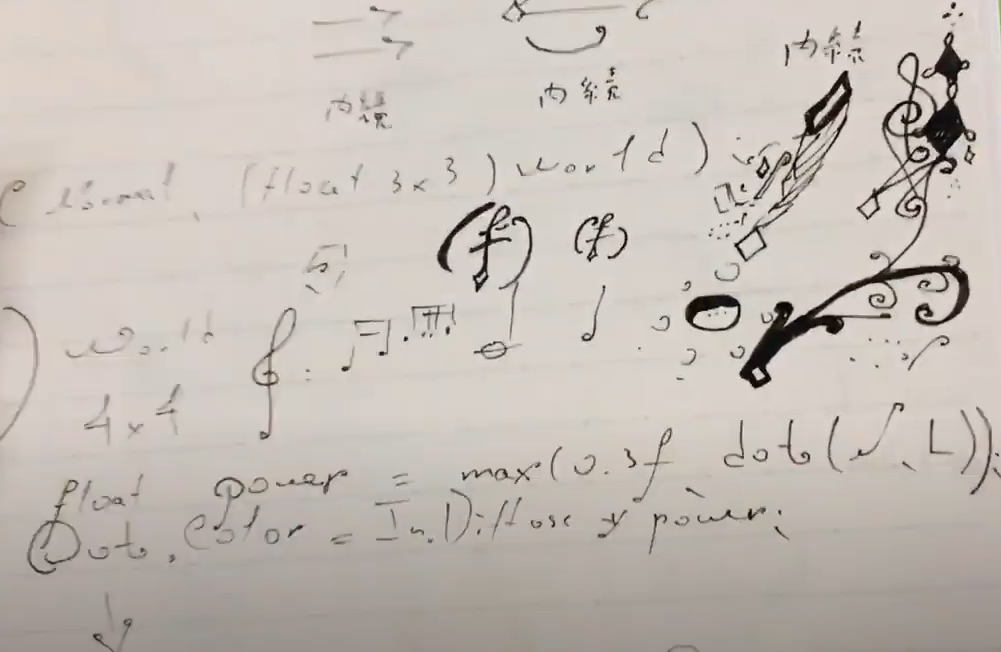 内積
内積
内積
Normal, (float 3x3) world)
(f) (f)
world
4x4
float power = max(0.3f dot(N, L));
Out.Color = In.Diffuse * power;